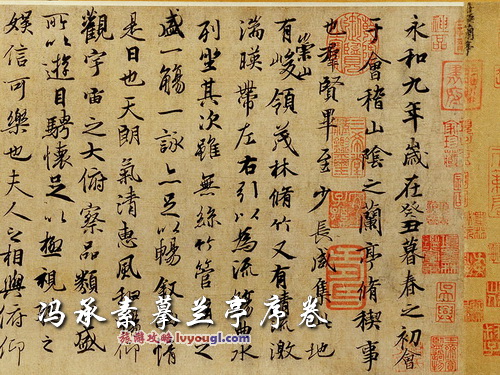 永和九年歲在癸丑暮春之初會
于會稽山陰之蘭亭脩稧事
也羣賢畢至少長咸集地
有崇山峻領茂林脩竹又有清流激
湍暎帶左右引以為流曲水
列坐其次雖無絲竹管之
盛一觴一詠亦足以暢敘情
是日也天朗氣清惠風和仰
觀宇宙之大俯察品類盛
所以遊目騁懷足以極視之
娛信可樂也夫人之相與俯仰
冯承素摹兰亭序卷
旅游攻略 lvyougl.com